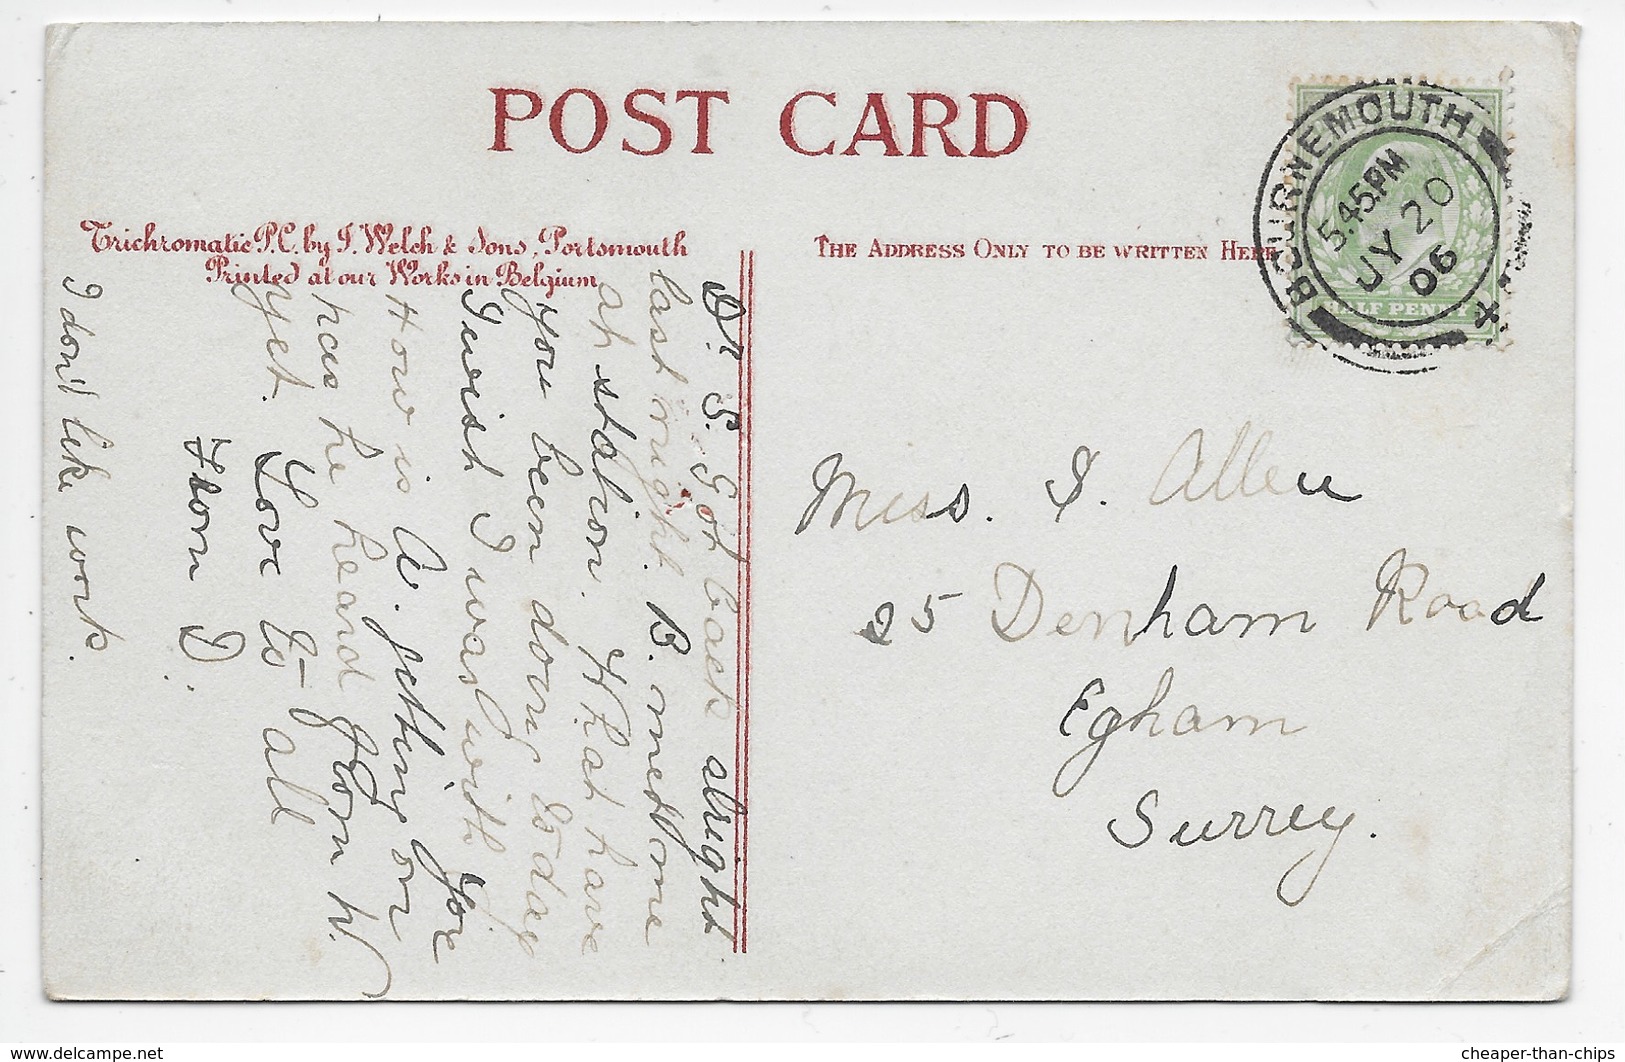 POST CARD
Trichromatic P.C. by J. Welch & Sons, Portsmouth
Printed at our Works in Belgium
THE ADDRESS ONLY TO BE WRITTEN HERE
BOURNEMOUTH
5.45PM
JY 20
06
HALF PENNY
Dr S. Got back alright
last night. B. met me
at station. What have
you been doing to day
I wish I was with you
How is A. getting on
has he heard from W.
yet. Love to all
from D.
I don't like work.
Miss. S. Allen
25 Denham Road
Egham
Surrey.
www.delcampe.net
cheaper-than-chips